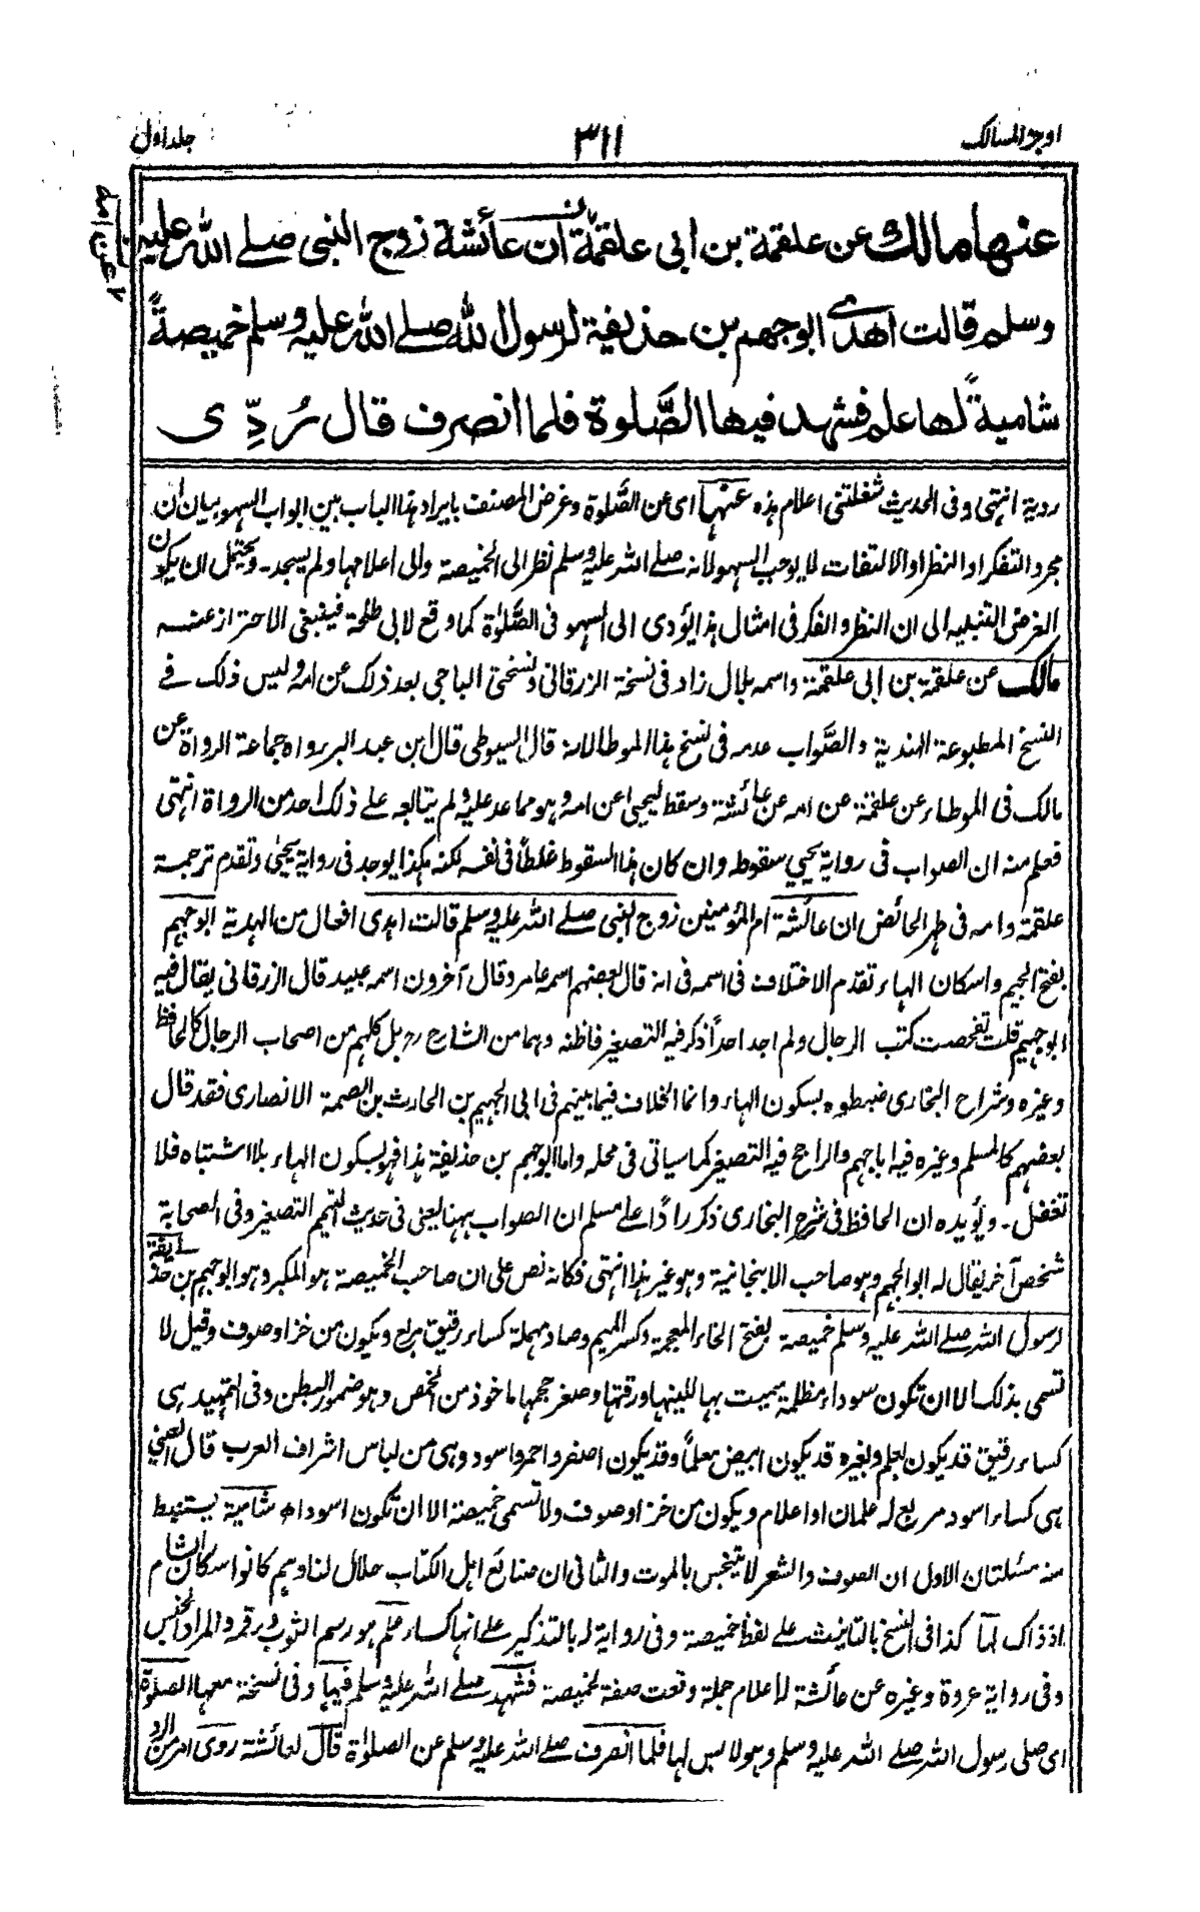 اوجز المسالك ٣١١ جلد اول
عنها مالك عن علقمة بن ابى علقمة ان عائشة زوج النبى صلے الله عليه
وسلم قالت اهدى ابوجهم بن حذيفة لرسول لله صلے الله عليه وسلم خميصةً
شاميةً لها علم فشهد فيها الصَّلوة فلما انصرف قال رُدِّى
ردية انتهى وفى الحديث شغلتنى اعلام هذه عنها اى عن الصَّلوة وغرض المصنف بايراد هذا الباب بين ابواب السهو بيان ان
مجرد التفكر او النظر او الالتفات لا يوجب السهو لانه صلے الله عليه وسلم نظر الى الخميصة والى اعلامها ولم يسجد۔ ويحتمل ان يكون
الغرض التنبيه الى ان النظر والفكر فى امثال هذا يؤدى الى السهو فى الصَّلوٰة كما وقع لابى طلحة فينبغى الاحتراز عنه
مالك عن علقمة بن ابى علقمة واسمه بلال زاد فى نسخة الزرقانى ونسختى الباجى بعد ذلك عن امه وليس ذلك فے
النسخ المطبوعة الهندية والصَّواب عدمه فى نسخ هذا الموطا لانه قال السيوطى قال ابن عبد البر رواه جماعة الرواة عن
مالك فى الموطاء عن علقمة عن امه عن عائشة وسقط ليحيى عن امه وهو مما عد عليه ولم يتابعه على ذلك احد من الرواة انتهى
فعلم منه ان الصواب فى رواية يحيى سقوطه وان كان هذا السقوط غلطاً فى نفسه لكنه هكذا يوجد فى رواية يحيٰى وتقدم ترجمة
علقمة وامه فى طهر الحائض ان عائشة ام المؤمنين زوج النبى صلے الله عليه وسلم قالت اهدى افعال من الهدية ابوجهم
بفتح الجيم واسكان الهاء تقدم الاختلاف فى اسمه فى انه قال بعضهم اسمه عامر وقال آخرون اسمه عبيد قال الزرقانى يقال فيه
ابوجهيم قلت تفحصت كتب الرجال ولم اجد احداً ذكر فيه التصغير فاظنه وهما من الشارح رہ بل كلهم من اصحاب الرجال كالحافظ
وغيره وشراح البخارى ضبطوه بسكون الهاء وانما الخلاف فيما بينهم فى ابى الجهيم بن الحارث بن الصمة الانصارى فقد قال
بعضهم كالمسلم وغيره فيه اباجهم والراجح فيه التصغير كما سياتى فى محله واما ابوجهم بن حذيفة هذا فهو بسكون الهاء بلا اشتباه فلا
تغفل۔ ويؤيده ان الحافظ فى شرح البخارى ذكر راداً على مسلم ان الصواب ههنا يعنى فى حديث التيمم التصغير وفى الصحابة
شخص آخر يقال له ابوالجهم وهو صاحب الانبجانية وهو غير هذا انتهى فكانه نص على ان صاحب الخميصة هو المكبر وهو ابوجهم بن حذيفة
لرسول الله صلے الله عليه وسلم خميصة بفتح الخاء المعجمة وكسر الميم وصاد مهملة كساء رقيق مربع ويكون من خز او صوف وقيل لا
تسمى بذلك الا ان تكون سوداء مظلمة سميت بها للينها ورقتها وصغر حجمها ماخوذ من الخمص وهو ضمور البطن وفى التمهيد هى
كساء رقيق قد يكون بعلم وبغيره قد يكون ابيض معلماً وقد يكون اصفر واحمر واسود وهى من لباس اشراف العرب قال العينى
هى كساء اسود مربع له علمان او اعلام ويكون من خز او صوف ولا تسمى خميصة الا ان تكون اسود اه شامية يستنبط
منه مسئلتان الاول ان الصوف والشعر لا يتنجس بالموت والثانى ان صنائع اهل الكتاب حلال لنا وهم كانوا سكان الشام
اذ ذاك لها كذا فى النسخ بالتانيث على لفظ خميصة وفى رواية له بالتذكير على انها كساء علم هو رسم الثوب ورقمه والمراد الجنس
وفى رواية عروة وغيره عن عائشة لها اعلام جملة وقعت صفة لخميصة فشهد صلے الله عليه وسلم فيها وفى نسخة معها الصلوة
اى صلى رسول الله صلے الله عليه وسلم وهو لابس لها فلما انصرف صلے الله عليه وسلم عن الصلوٰة قال لعائشة ردى امر من الرد